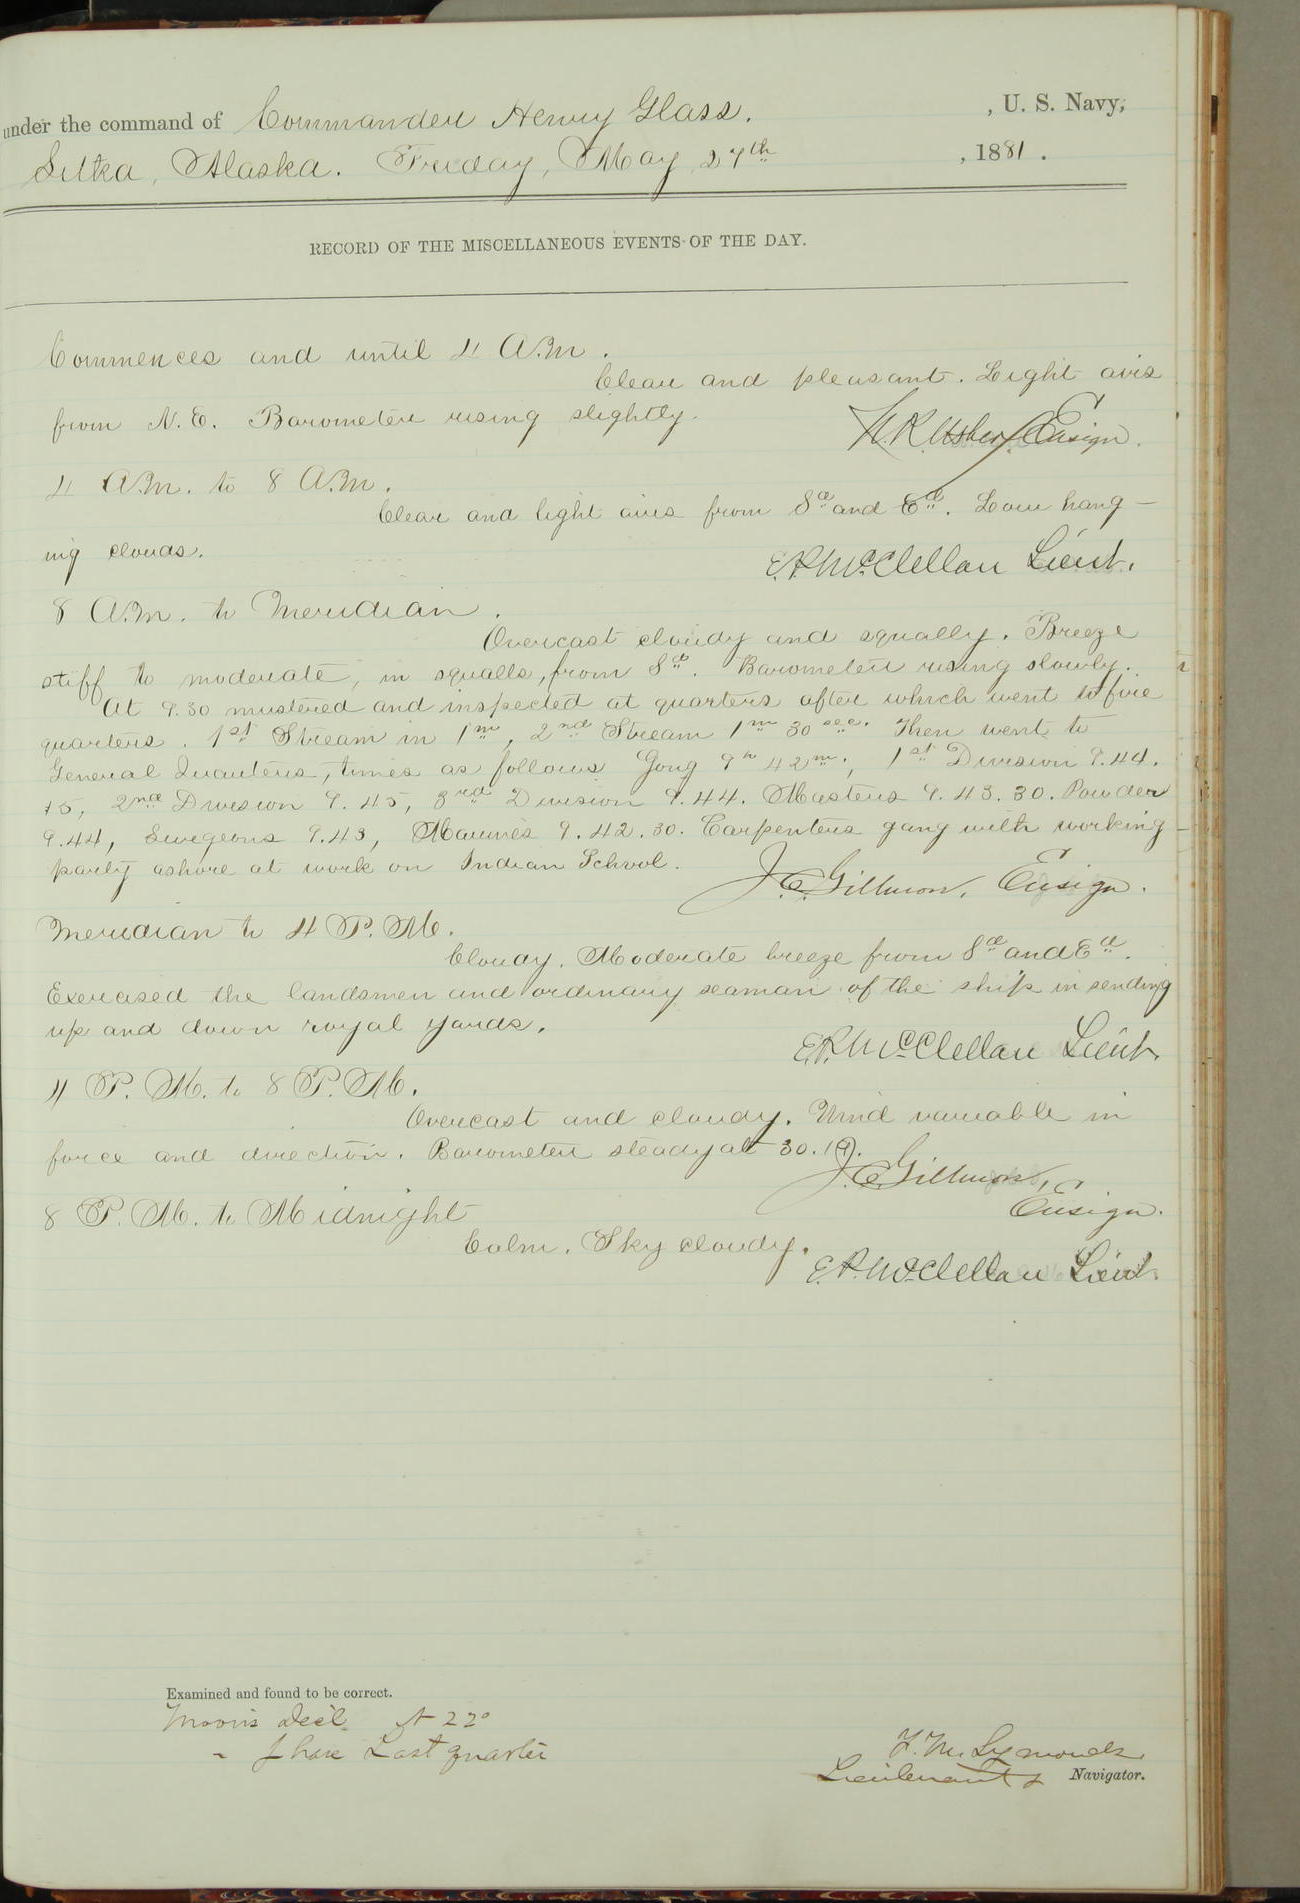 under the command of Commander Henry Glass. , U. S. Navy,
Sitka, Alaska. Friday, May 27th , 1881.
RECORD OF THE MISCELLANEOUS EVENTS OF THE DAY.
Commences and until 4 A.M.
Clear and pleasant. Light airs
from N.E. Barometer rising slightly.
N.R. Usher, Ensign.
4 A.M. to 8 A.M.
Clear and light airs from Sd and Ed. Low hang-
ing clouds.
E.P. McClellan Lieut.
8 A.M. to Meridian.
Overcast cloudy and squally. Breeze
stiff to moderate, in squalls, from Sd. Barometer rising slowly.
At 9.30 mustered and inspected at quarters after which went to fire
quarters. 1st Stream in 1m, 2nd Stream 1m 30 sec. Then went to
General Quarters, times as follows Gong 9h 42m., 1st Division 9.44.
15, 2nd Division 9.45, 3rd Division 9.44. Masters 9.43.30. Powder
9.44, Surgeons 9.43, Marines 9.42.30. Carpenters gang with working
party ashore at work on Indian School.
J.C. Gillmore, Ensign.
Meridian to 4 P.M.
Cloudy. Moderate breeze from Sd and Ed.
Exercised the landsmen and ordinary seaman of the ship in sending
up and down royal yards.
E.P. McClellan Lieut.
4 P.M. to 8 P.M.
Overcast and cloudy. Wind variable in
force and direction. Barometer steady at 30.19.
J.C. Gillmore,
Ensign.
8 P.M. to Midnight
Calm. Sky cloudy.
E.P. McClellan Lieut.
Examined and found to be correct.
Moon's Decl. N 22°
" phase Last quarter
F. M. Symonds
Lieutenant & Navigator.